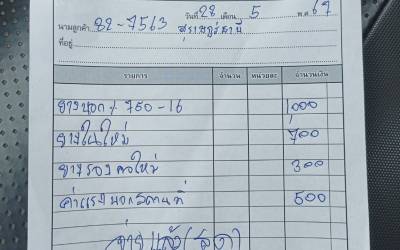 วันที่ 28 เดือน 5 พ.ศ. 67
นามลูกค้า 82-7563 สุราษฎร์ธานี
ที่อยู่
รายการ จำนวน หน่วยละ จำนวนเงิน
ยางนอก 750-16 1,000
ยางในใหม่ 700
ยางรองคอใหม่ 300
ค่าแรงนอกสถานที่ 500
จ่ายแล้ว (สด)